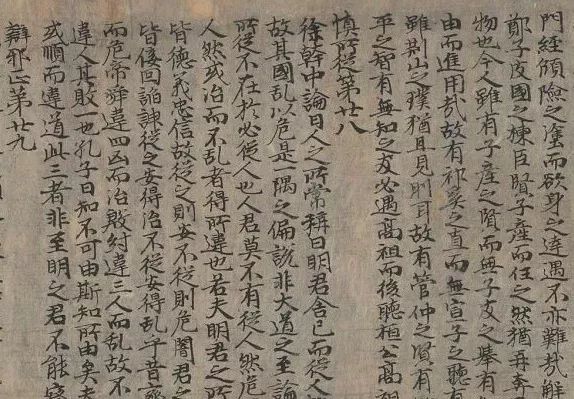 門經傾險之塗而欲身之達遇不亦難哉解
鄭子皮國之棟臣賢子產而任之然猶再奔
物也今人雖有子產之賢而無子皮之舉有
由而進用哉故有祁奚之直而無宣子之聽有
雖荊山之璞猶且見刖耳故有管仲之賢有
平之智有無知之友必遇高祖而後聽桓公高祖
慎所從第廿八
徐幹中論曰人之所常稱曰明君舍己而從人
故其國乱以危是一隅之偏說非大道之至論
所從不在於必從人也人君莫不有從人然危
人然或治而不乱者得所違也若夫明君之所
皆德義忠信故從之則安不從則危闇君之
皆佞回諂諛從之安得治不從安得乱乎昔齊
而危帝舜違四凶而治殷紂違三人而乱故不
違人其敗一也孔子曰知不可由斯知所由矣夫
或順而違道此三者非至明之君不能察
辯邪正第廿九